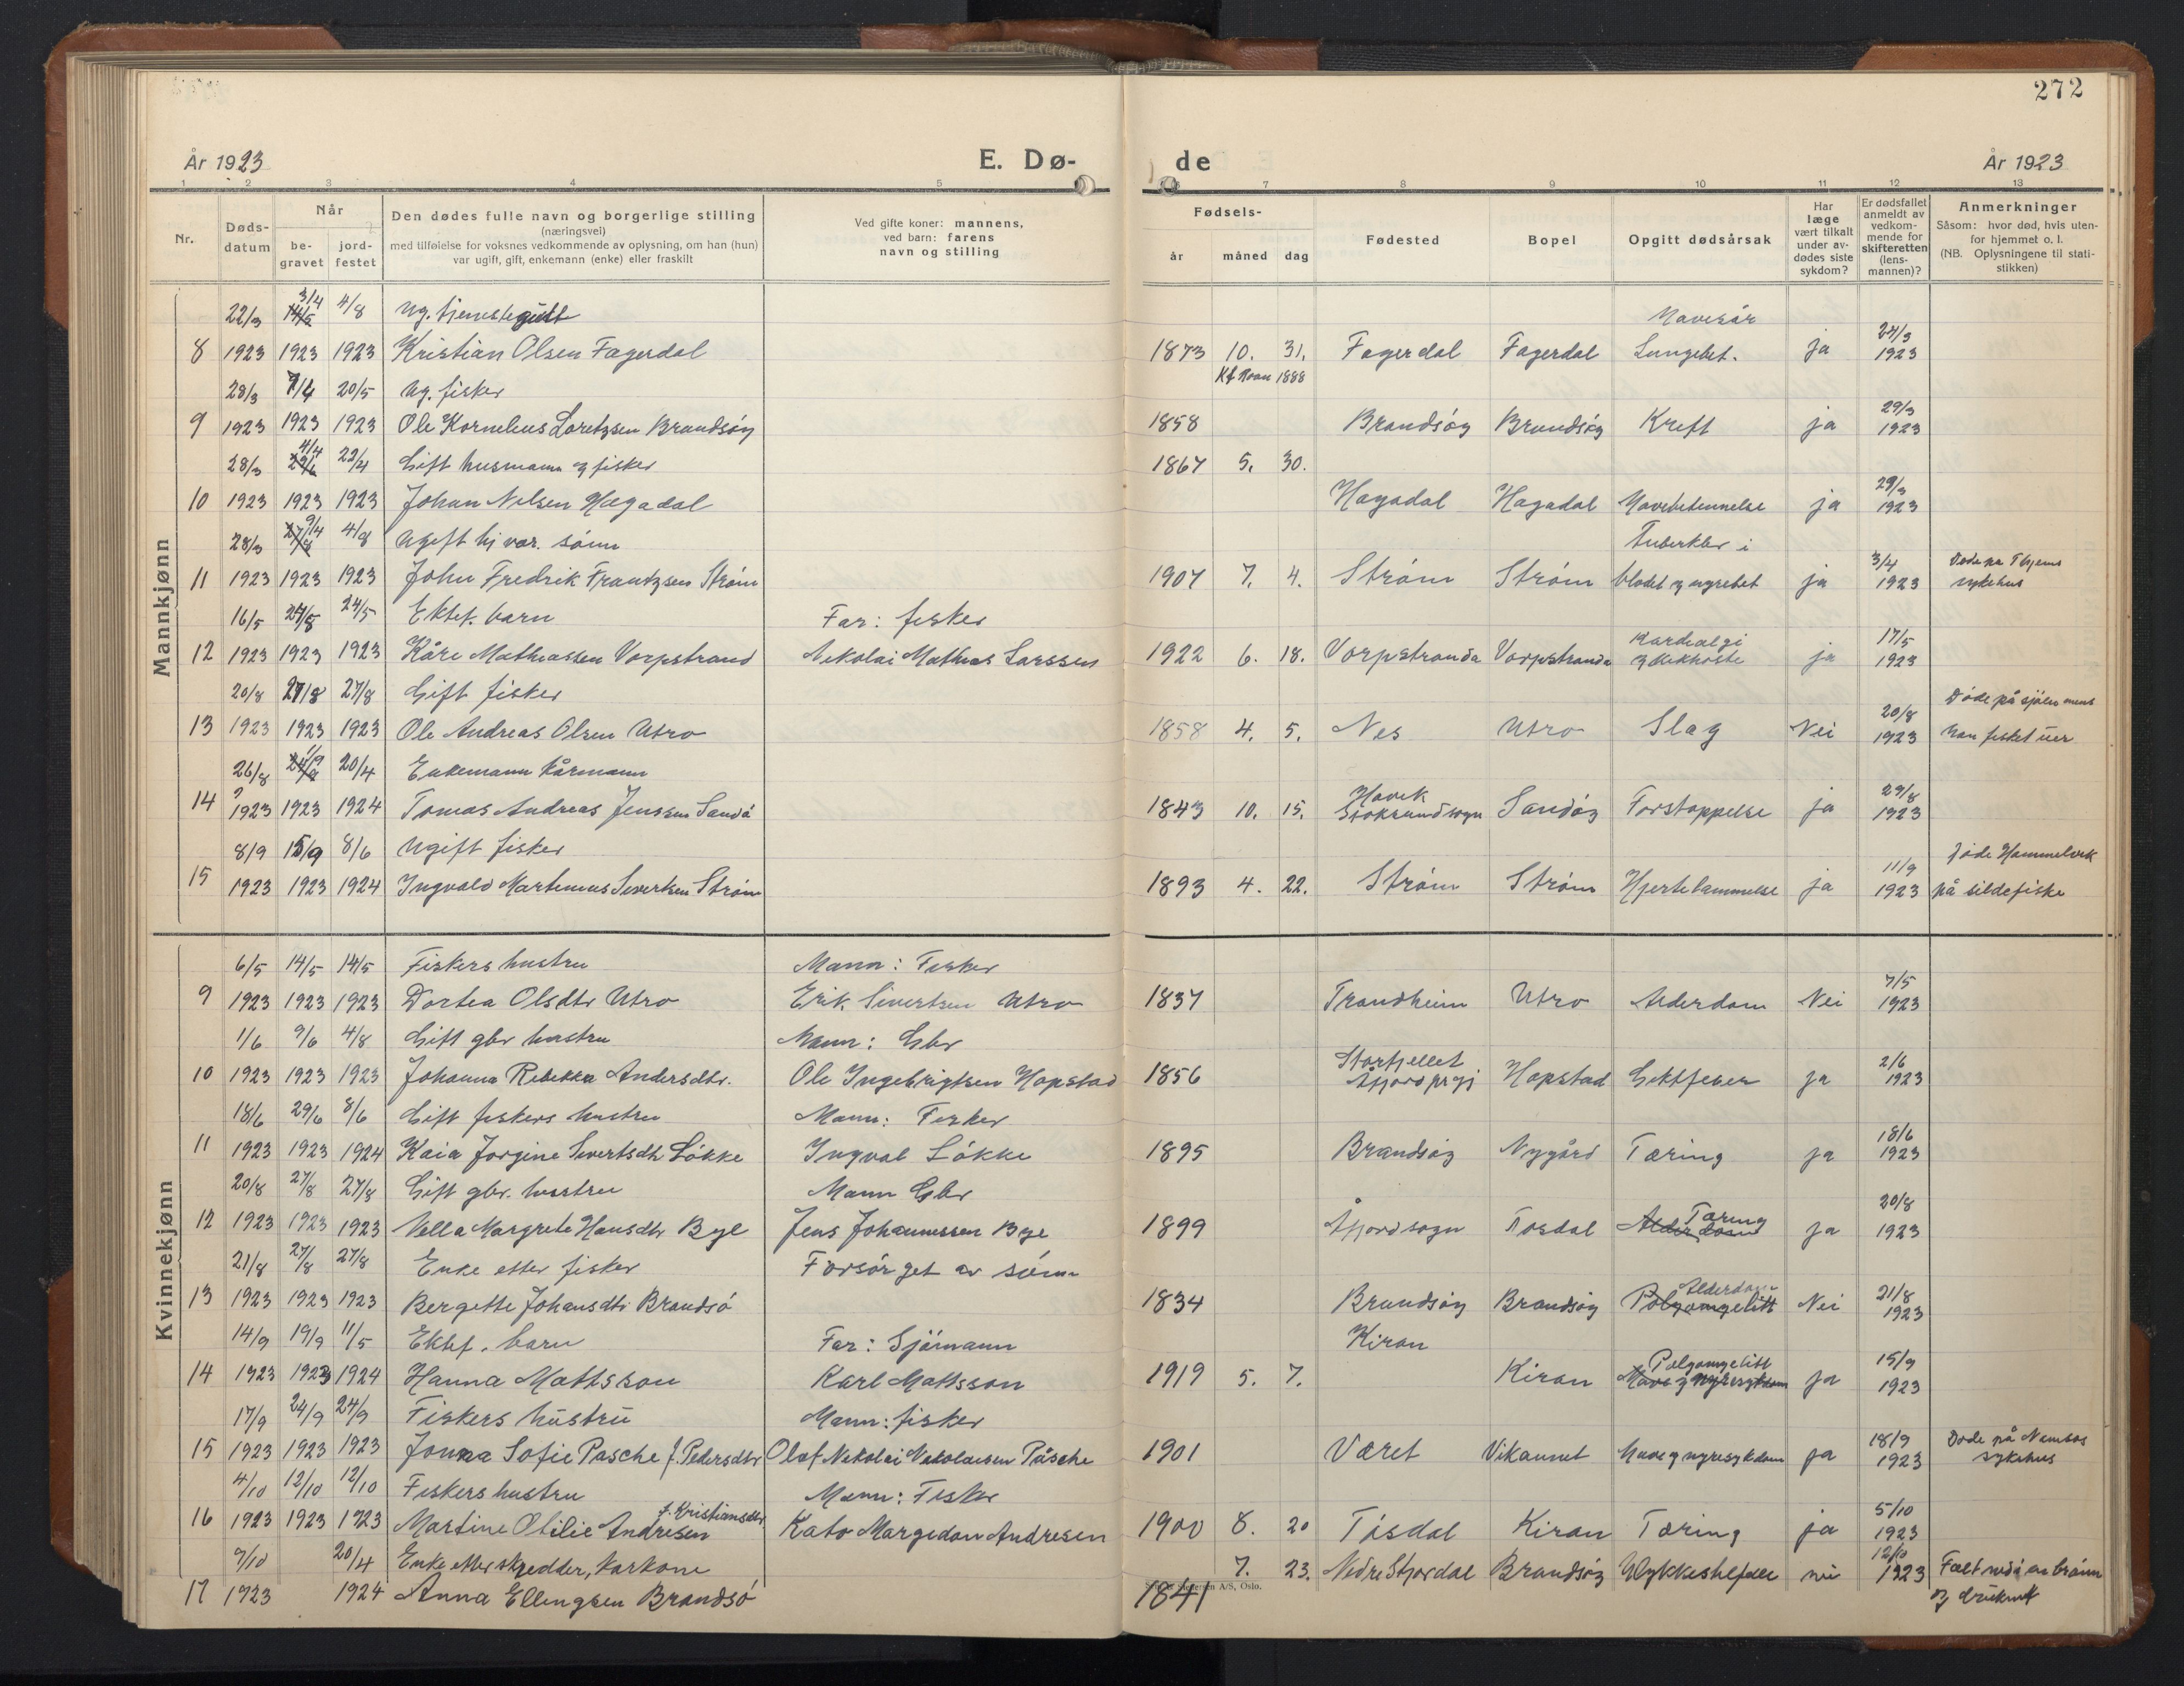 272
År 1923 E. Dø- de År 1923
1 2 3 4 5 6 7 8 9 10 11 12 13
Nr.
Døds-datum
Når
be-gravet
jord-festet
Den dødes fulle navn og borgerlige stilling
(næringsvei)
med tilføielse for voksnes vedkommende av oplysning, om han (hun)
var ugift, gift, enkemann (enke) eller fraskilt
Ved gifte koner: mannens,
ved barn: farens
navn og stilling
Fødsels-
år måned dag
Fødested
Bopel
Opgitt dødsårsak
Har læge vært tilkalt under av-dødes siste sykdom?
Er dødsfallet anmeldt av vedkom-mende for skifteretten (lens-mannen)?
Anmerkninger
Såsom: hvor død, hvis uten-
for hjemmet o. l.
(NB. Oplysningene til stati-
stikken)
Mannkjønn
22/3 3/4 4/8 Ug. tjenestegutt Mavesår 24/3
8 1923 1923 1923 Kristian Olsen Fagerdal 1873 10. 31. Fagerdal Fagerdal Lungebet. ja 1923
Kf Roan 1888
28/3 7/4 20/5 Ug. fisker 29/3
9 1923 1923 1923 Ole Kornelius Loretzsen Brandsøy 1858 Brandsøy Brandsøy Kreft ja 1923
28/3 4/4 22/4 Gift husmann og fisker 1867 5. 30. 29/3
10 1923 1923 1923 Johan Nilsen Hagadal Hagadal Hagadal Mavebetennelse ja 1923
28/3 9/4 4/8 Ugift hj. vær. sønn Tuberkler i 3/4 Døde på Thjems
11 1923 1923 1923 John Fredrik Frantzsen Strøm 1907 7. 4. Strøm Strøm blodet og nyrebet ja 1923 sykehus
16/5 24/5 24/5 Ektef. barn Far: fisker Kardialgi 17/5
12 1923 1923 1923 Kåre Mathiassen Vorpstrand Nikolai Mathias Larssen 1922 6. 18. Vorpstranda Vorpstranda og kikhoste ja 1923
20/8 27/8 27/8 Gift fisker 20/8 Døde på sjøen mens
13 1923 1923 1923 Ole Andreas Olsen Utro 1858 4. 5. Nes Utro Slag Nei 1923 han fisket uer
26/8 1/9 20/4 Enkemann kårmann Havik 29/8
14 ? 1923 1923 1924 Tomas Andreas Jenssen Sandø 1843 10. 15. Stoksund sogn Sandøy Forstoppelse ja 1923
8/9 15/9 8/6 Ugift fisker 11/9 Døde Hammelvik
15 1923 1923 1924 Ingvald Martinius Sivertsen Strøm 1893 4. 22. Strøm Strøm Hjertelammelse ja 1923 på sildefiske
Kvinnekjønn
6/5 14/5 14/5 Fiskers hustru Mann: Fisker 7/5
9 1923 1923 1923 Dortea Olsdtr Utro Erik Sivertsen Utro 1837 Trondheim Utro Alderdom Nei 1923
1/6 9/6 4/8 Gift gbr hustru Mann: Gbr Storfjellet 2/6
10 1923 1923 1923 Johanna Rebekka Andersdtr. Ole Ingebrigtsen Hopstad 1856 Åfjord prgj Hopstad Giktfeber ja 1923
18/6 29/6 8/6 Gift fiskers hustru Mann: Fisker 18/6
11 1923 1923 1924 Kaia Jorgine Sivertsdtr Løkke Ingval Løkke 1895 Brandsøy Nygård Tæring ja 1923
20/8 27/8 27/8 Gift gbr. hustru Mann Gbr Tæring 20/8
12 1923 1923 1923 Nella Margrete Hansdtr Bye Jens Johannessen Bye 1899 Åfjord sogn Tosdal Alderdom ja 1923
21/8 27/8 27/8 Enke etter fisker Forsørget av sønn Alderdom 21/8
13 1923 1923 1923 Bergette Johansdtr Brandsø 1834 Brandsøy Brandsøy Polyomyelitt Nei 1923
14/9 19/9 11/5 Ektef. barn Far: Sjømann Kiran Polyomyelitt 15/9
14 1923 1923 1924 Hanna Mattsson Karl Mattsson 1919 5. 7. Kiran Mave og nyresykdom ja 1923
17/9 24/9 24/9 Fiskers hustru Mann: fisker 18/9 Døde på Namsos
15 1923 1923 1923 Jonna Sofie Pasche f. Pedersdtr Olaf Nikolai Nikolaisen Påsche 1901 Været Vikannet Mave og nyresykdom ja 1923 sykehus
4/10 12/10 12/10 Fiskers hustru f. Kristiansdtr Mann: Fisker 5/10
16 1923 1923 1923 Martine Otilie Andresen Kato Margidon Andresen 1900 8. 20 Tøsdal Kiran Tæring ja 1923
9/10 20/4 Enke etter skredder, kårkone 7. 23. Nedre Stjørdal Brandsøy Ulykkestilfælle nei 12/10 1923 Falt nedi en brønn
17 1923 1924 Anna Ellingsen Brandsø 1841 og druknet
A/S, Oslo.